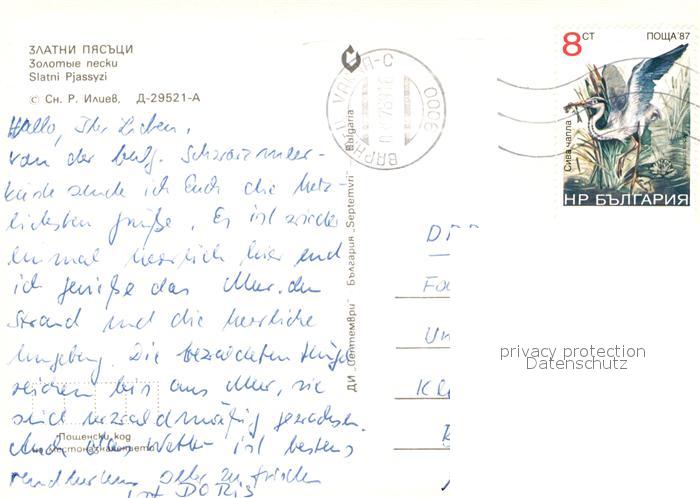 ЗЛАТНИ ПЯСЪЦИ
Золотые пески
Slatni Pjassyzi
© Сн. Р. Илиев, Д-29521-А
Hallo, Ihr Lieben,
von der bulg. Schwarzmeer-
küste sende ich Euch die herz-
lichsten Grüße. Es ist wieder
einmal herrlich hier und
ich genieße das Meer, den
Strand und die herrliche
Umgebung. Die bewaldeten Hügel
reichen bis ans Meer, sie
sind
Auch ist bestens
zu frischen
DORIS
Пощенски код
на местоназначението
ДИ „Септември" България „Septemvri" Bulgaria
ВАРНА VARNA-C
9000
8 СТ
ПОЩА'87
Сива чапла
НР БЪЛГАРИЯ
Di
Un
Kl
privacy protection
Datenschutz